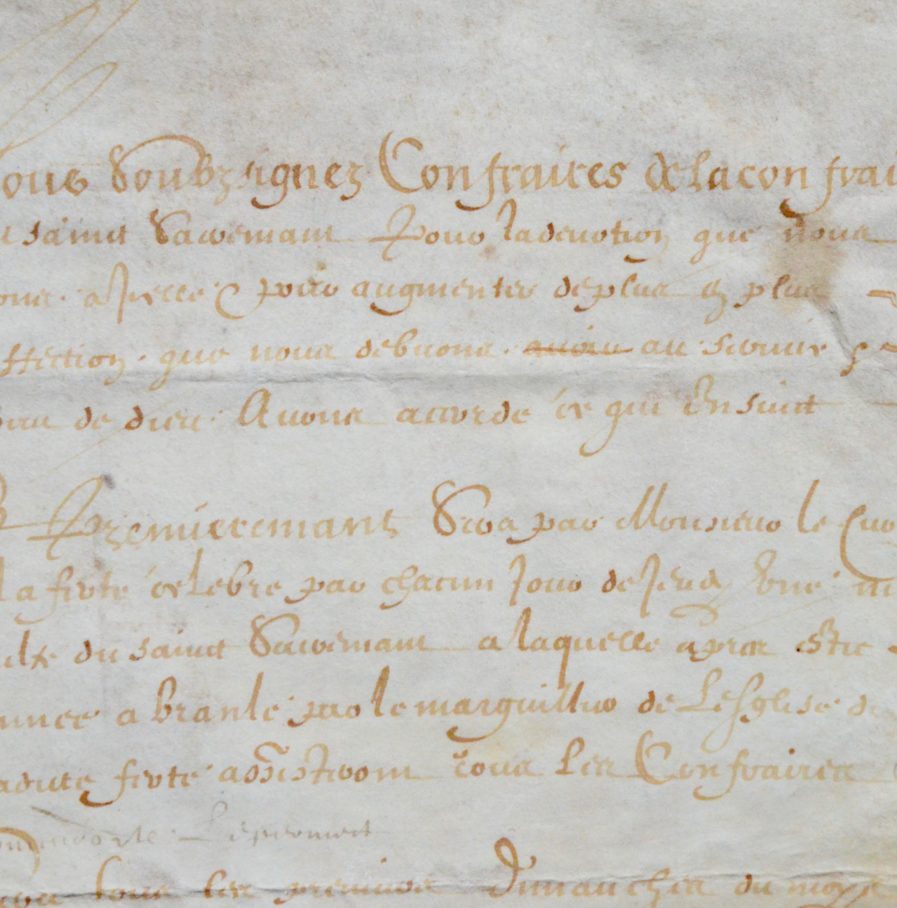 ous Soubzsignez Confraires de la confrai
saint Sacremant Pour la devotion que nous
avons a Icelle & pour augmenter de plus en plus
ffection que nous debvons au service
de dieu Avons accordé ce qui Ensuict
Premieremant Sera par Monsieur le Cur
la ferté celebré par chacun Jour de Jeudy Une
du saint Sacremant a laquelle apres estre
a branle par le marguillier de Lesglise de
ladite ferté assisteront tous Les Confraires
Lesquels
tous les premiers Dimanches du moys